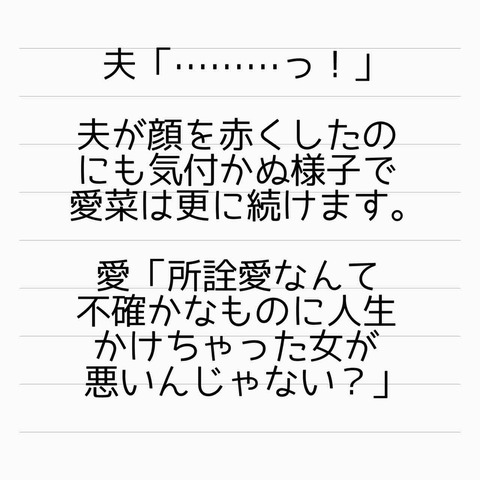 夫「………っ！」
夫が顔を赤くしたの
にも気付かぬ様子で
愛菜は更に続けます。
愛「所詮愛なんて
不確かなものに人生
かけちゃった女が
悪いんじゃない？」